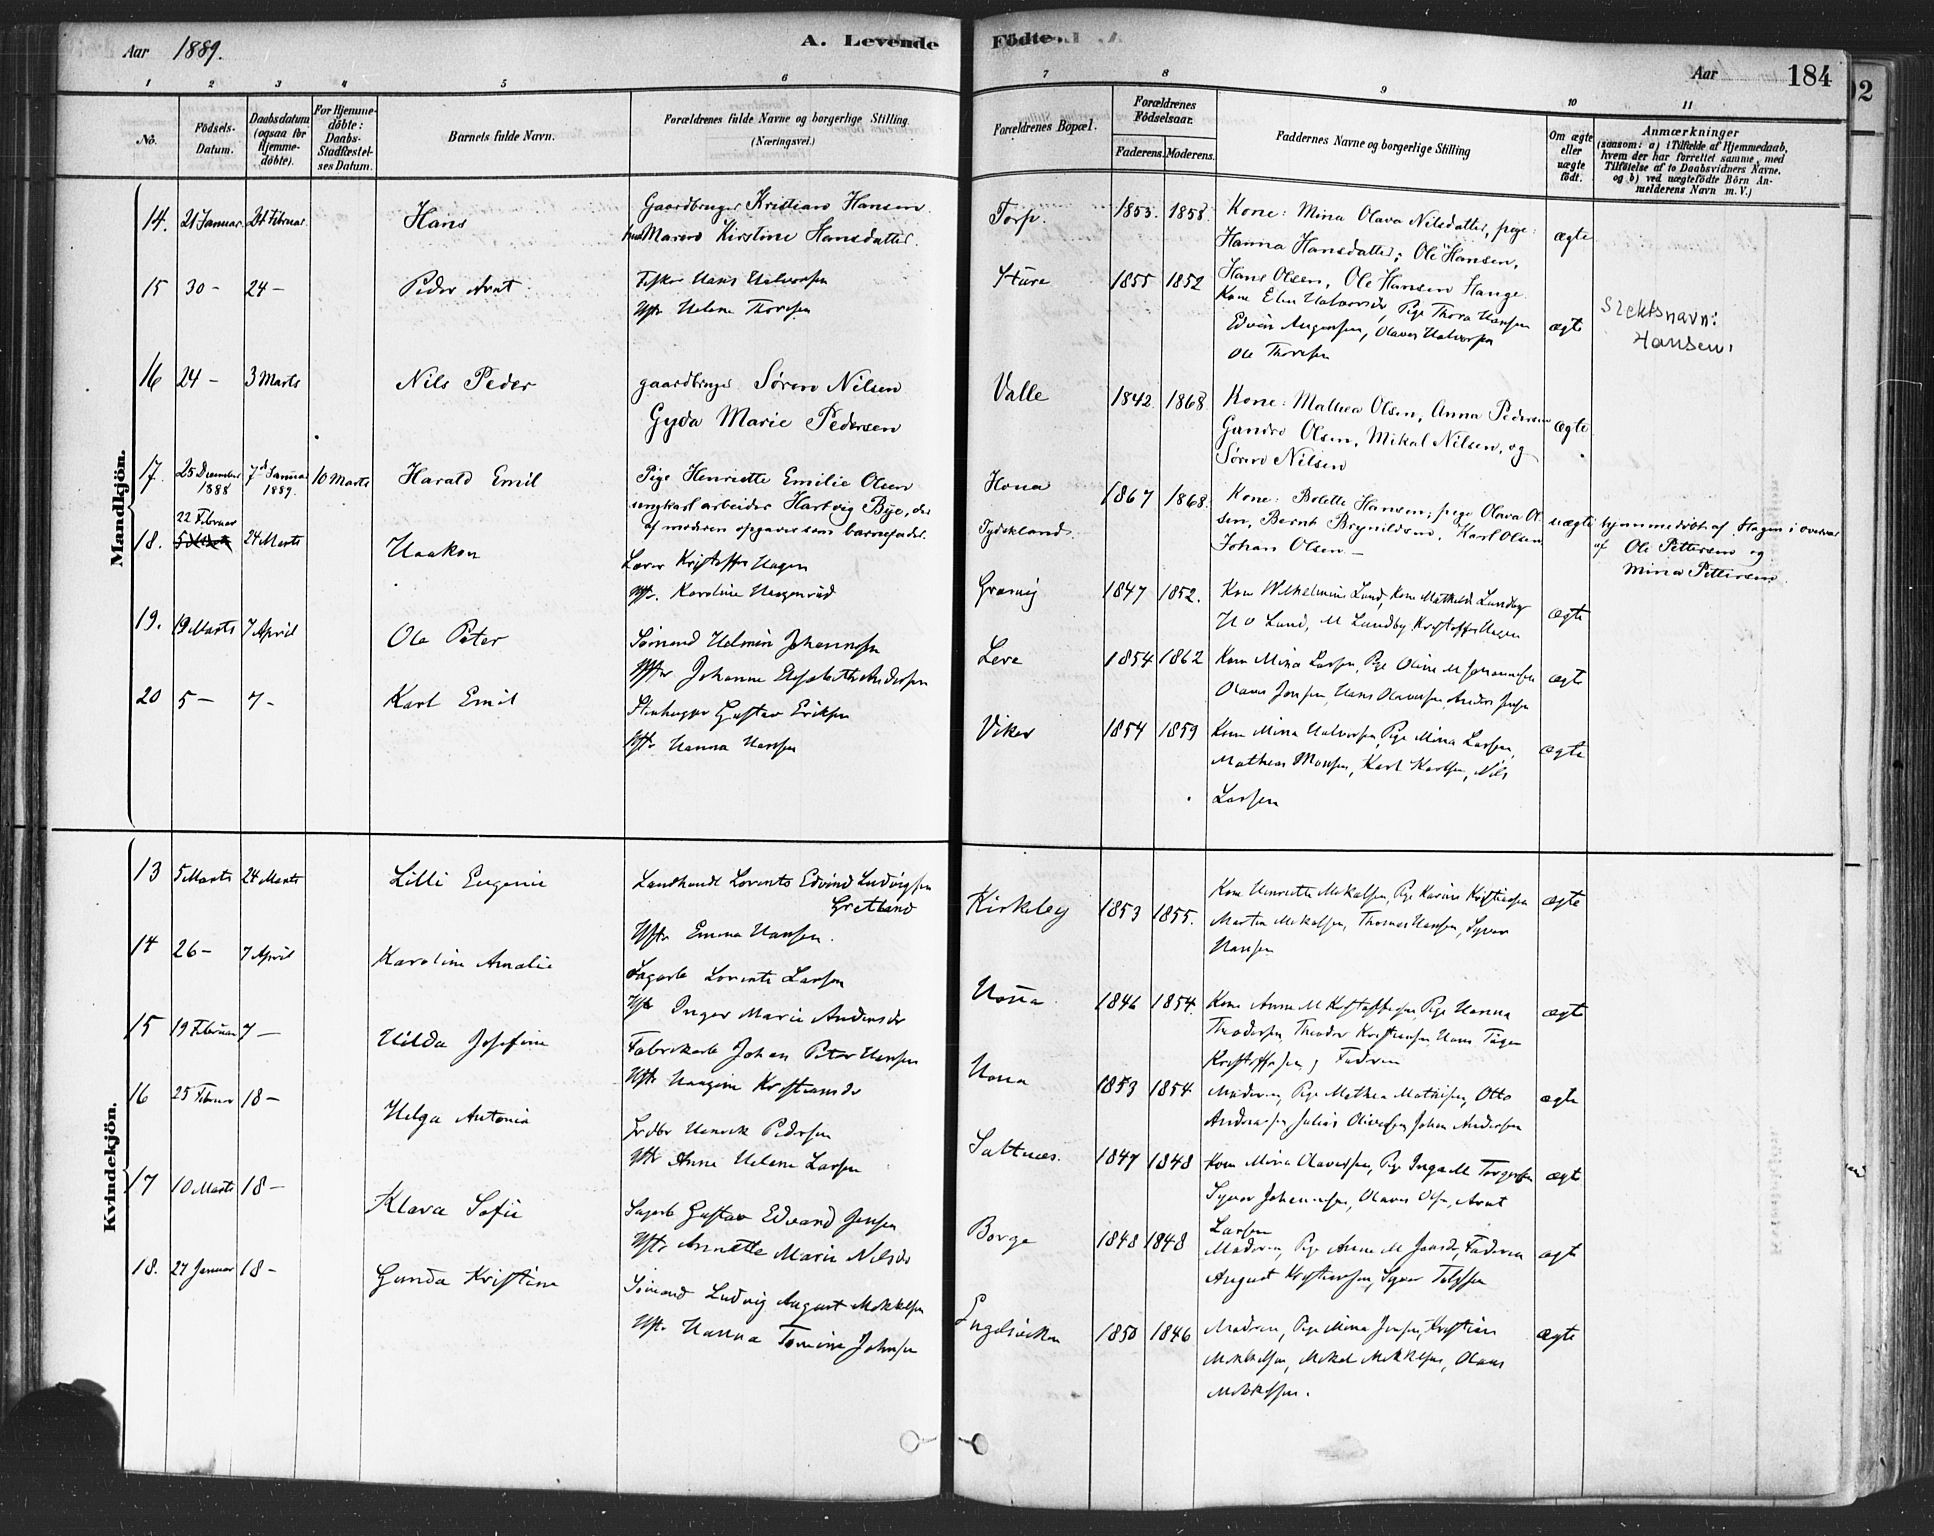 Aar 1889. A. Levende Fødte. Aar 184
1 2 3 4 5 6 7 8 9 10 11
No. Fødsels-Datum. Daabsdatum (ogsaa for Hjemmedøbte). For Hjemmedøbte: Daabs-Stadfæstelses Datum. Barnets fulde Navn. Forældrenes fulde Navne og borgerlige Stilling. (Næringsvei.) Forældrenes Bopæl. Forældrenes Fødselsaar. Faderens. Moderens. Faddernes Navne og borgerlige Stilling Om ægte eller uægte født. Anmærkninger (saasom: a) i Tilfælde af Hjemmedaab, hvem der har forrettet samme, med Tilføielse af to Daabsvidners Navne, og b) ved uægtefødte Børn Anmelderens Navn m. V.)
Mandkjön.
14. 21 Januar 24 Februar Hans Gaardbruger Kristian Hansen Torp. 1853. 1858. Kone: Mina Olava Nilsdatter, pige: ægte
Maren Kirstine Hansdatter. Hanna Hansdatter, Ole Hansen,
Hans Olsen, Ole Hansen Hauge.
15 30 – 24 – Peder Arnt Fisker Hans Halvorsen Sture 1855 1852 Kone Elen Halvorsdr, Pige Thora Hansen ægte Slektsnavn:
Hstr Helene Thoresen Edvin Augensen, Olaves Halvorsen Hansen.
Ole Thoresen
16 24 – 3 Marts Nils Peder gaardbruger Søren Nilsen Valle 1842. 1868. Kone: Mathea Olsen, Anna Pedersen ægte
Gyda Marie Pedersen Olsen, Mikal Nilsen, og
Søren Nilsen
17. 25 December 1888 7 Januar 1889. 10 Marts Harald Emil Pige Henriette Emilie Olsen Houa 1867 1868. Kone: Bolette Hansen, pige Olava Olsen, uægte hjemmedøbt af Hagen i overvær
ungkarl arbeider Hartvig Bye, der Tydskland. Bernt Brynildsen, Karl Olsen af Ole Pettersen og
af moderen opgaves som barnefader. Johan Olsen – Mina Pettersen.
18. 22 Februar 24 Marts Haakon Lærer Kristoffer Hagen 1847 1852. Kone Wilhelmine Lund, Kone Mathilde Lundby ægte
Hstr. Karoline H O Lund, M Lundby Kristoffer Hagen
19. 19 Marts 7 April Ole Peter Sømand Helmin Johannesen Lere 1854 1862 Kone Mina Larsen, Pige Oline M Johannesen ægte
Hstr Johanne Elisabeth Andersen Olaves Jensen, Hans Olavesen, Anders Jensen
20 5 – 7 – Karl Emil Stenhugger Gustav Eriksen Viker 1854 1859 Kone Mina Halvorsen, Pige Mina Larsen, ægte
Hstr Hanna Hansen Mathias Monsen, Karl Karlsen, Nils
Larsen
Kvindekjön.
13 5 Marts 24 Marts Lilli Eugenie Landhandl Lorents Edvind Ludvigsen Kirkeby 1853 1855. Kone Henriette Mikalsen, Pige Karine Kristiansen ægte
Gretland Martin Mikalsen, Thomas Hansen, Syver
Hstr Emma Hansen. Hansen
14 26 – 7 April Karoline Amalie Sagarb Lorents Larsen Houa. 1846 1854. Kone Anne M Kristoffersen, Pige Hanna ægte
Hstr Inger Marie Andersdr Theodorsen, Theodor Kristiansen Hans
Kristoffersen, Faderen
15 19 Februar 7 – Hilda Josefine Fabrikarb Johan Peter Hansen Houa 1853 1854 Moderen, Pige Mathea Mathisen, Otto ægte
Hstr Kristiansdr Andreassen, Julius Olivesen Johan Andersen
16 25 Februar 18 – Helga Antonia Grdbr Henrik Pedersen Saltnes. 1847 1848 Kone Mina Olavessen, Pige Inga M Torgersen ægte
Hstr Anne Helene Larsen Syver Johannesen, Olaves Olsen, Arnt
Larsen
17 10 Marts 18 – Klara Sofie Sagarb Gustav Edvard Jensen Borge 1848 1848 Moderen, Pige Anne M Faderen ægte
Hstr Annette Marie Nilsdr August Kristiansen, Syver
18. 27 Januar 18 – Gunda Kristine Sømand Ludvig August Mikkelsen Engelsviken 1850 1846 Moderen, Pige Mina Jensen, Kristian ægte
Hstr. Hanna Tomine Johnsen Mikkelsen, Mikal Mikkelsen, Olaus
Mikkelsen.